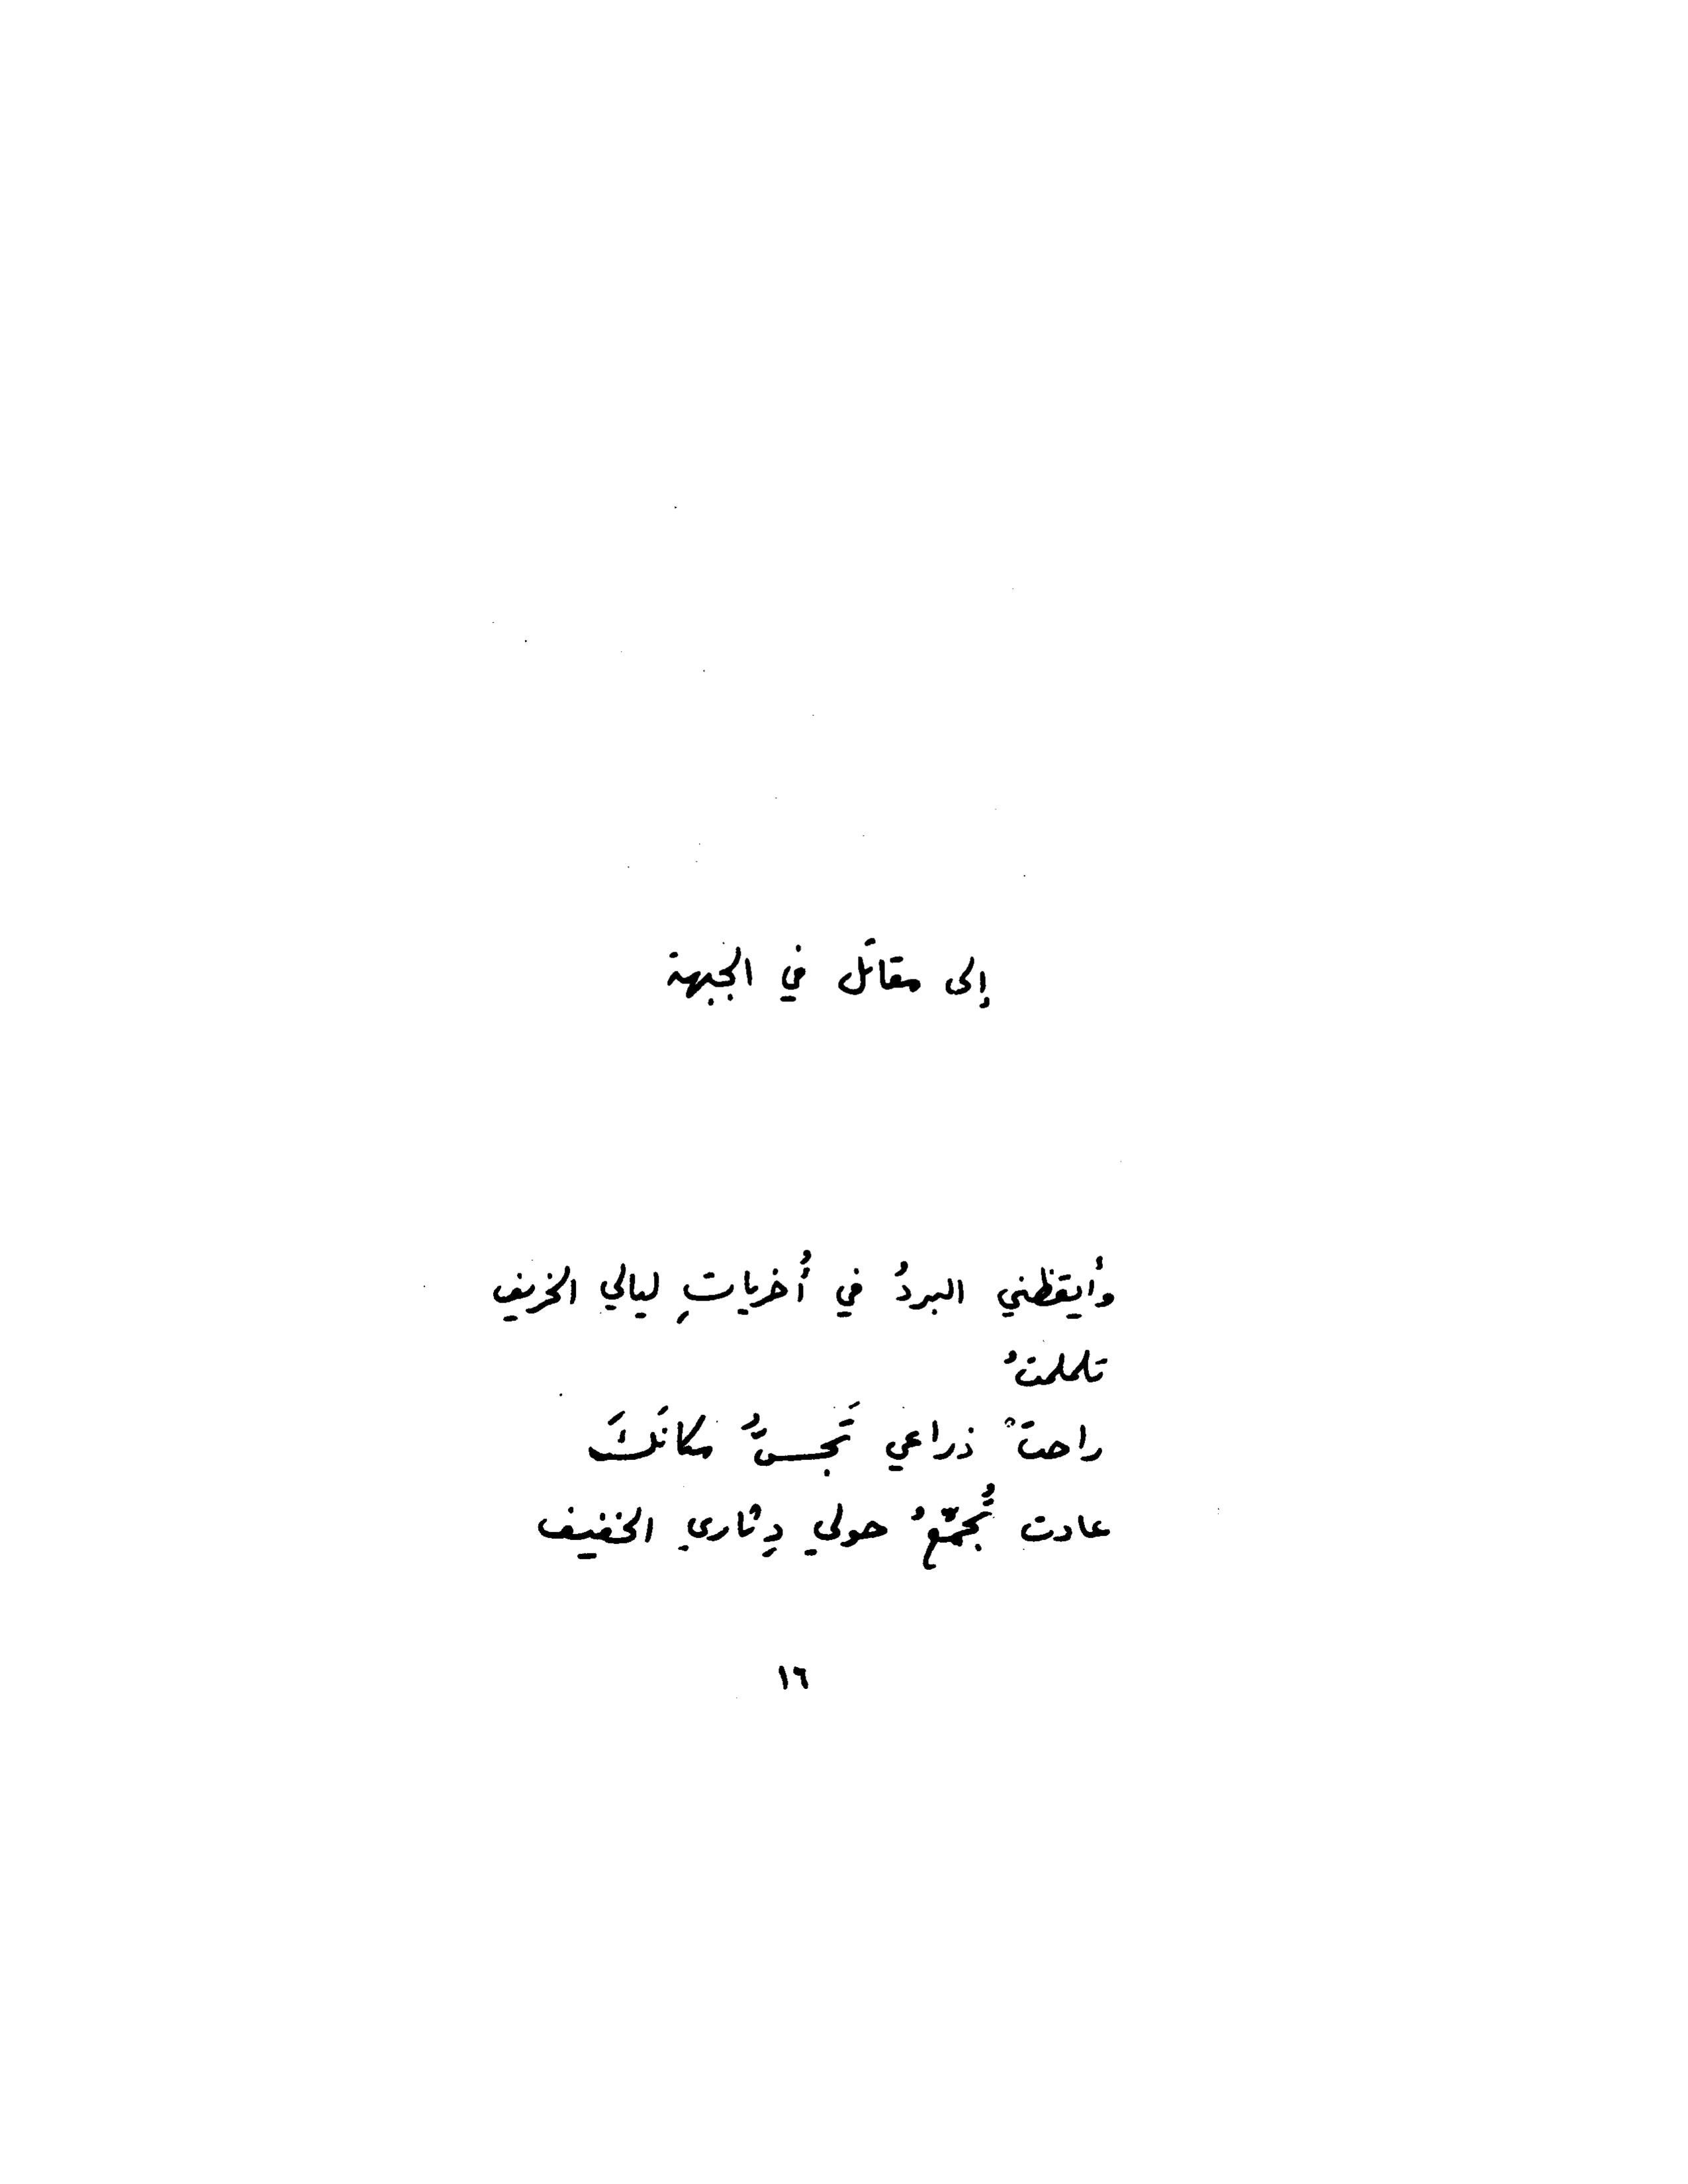 إلى مقاتل في الجبهة
وأيقظني البردُ في أُخرياتِ ليالي الخريف
تململتُ
راحتْ ذراعي تَجسُّ مكانَكَ
عادت تُجمّعُ حولي دِثاري الخفيف
١٦